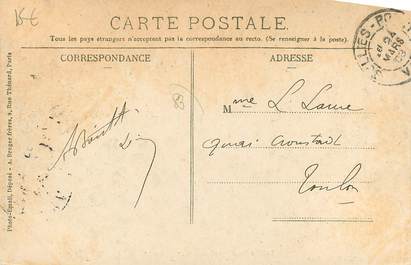 15€
CARTE POSTALE
Tous les pays étrangers n'acceptent pas la correspondance au recto. (Se renseigner à la poste).
CORRESPONDANCE
ADRESSE
83
Mme L. Laure
quai Cronstadt
Toulon
MARS
Photo-Email, Déposé - A. Breger frères, 9, Rue Thénard, Paris